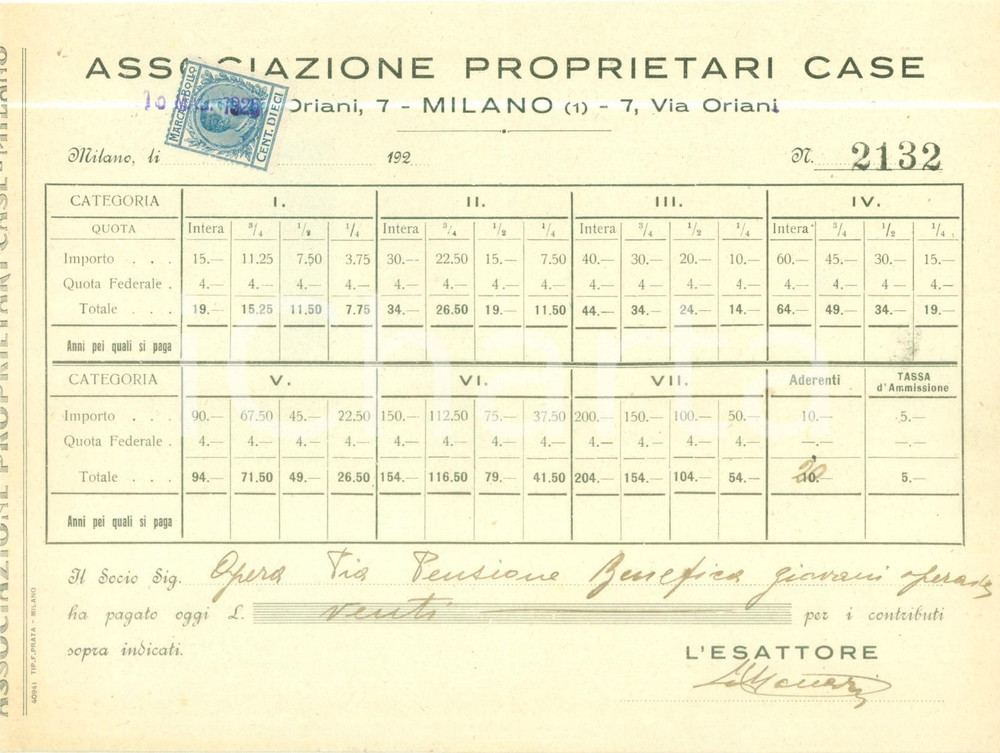 ASSOCIAZIONE PROPRIETARI CASE
Oriani, 7 - MILANO (1) - 7, Via Oriani
MARCA DA BOLLO
CENT. DIECI
Milano, li 192
N. 2132
CATEGORIA I. II. III. IV.
QUOTA Intera 3/4 1/2 1/4 Intera 3/4 1/2 1/4 Intera 3/4 1/2 1/4 Intera 3/4 1/2 1/4
Importo . . . 15.— 11.25 7.50 3.75 30.— 22.50 15.— 7.50 40.— 30.— 20.— 10.— 60.— 45.— 30.— 15.—
Quota Federale . 4.— 4.— 4.— 4.— 4.— 4.— 4.— 4.— 4.— 4.— 4.— 4.— 4.— 4.— 4.— 4.—
Totale . . . 19.— 15.25 11.50 7.75 34.— 26.50 19.— 11.50 44.— 34.— 24.— 14.— 64.— 49.— 34.— 19.—
Anni pei quali si paga
CATEGORIA V. VI. VII. Aderenti TASSA d'Ammissione
Importo . . . 90.— 67.50 45.— 22.50 150.— 112.50 75.— 37.50 200.— 150.— 100.— 50.— 10.— 5.—
Quota Federale . 4.— 4.— 4.— 4.— 4.— 4.— 4.— 4.— 4.— 4.— 4.— 4.— —.— —.—
Totale . . . 94.— 71.50 49.— 26.50 154.— 116.50 79.— 41.50 204.— 154.— 104.— 54.— 10.— 20 5.—
Anni pei quali si paga
Il Socio Sig. Opera Pia Pensione Benefica giovani
ha pagato oggi L. venti per i contributi
sopra indicati.
L'ESATTORE
ASSOCIAZIONE PROPRIETARI CASE - MILANO
40941 TIP. F. PRATA - MILANO
iCharta